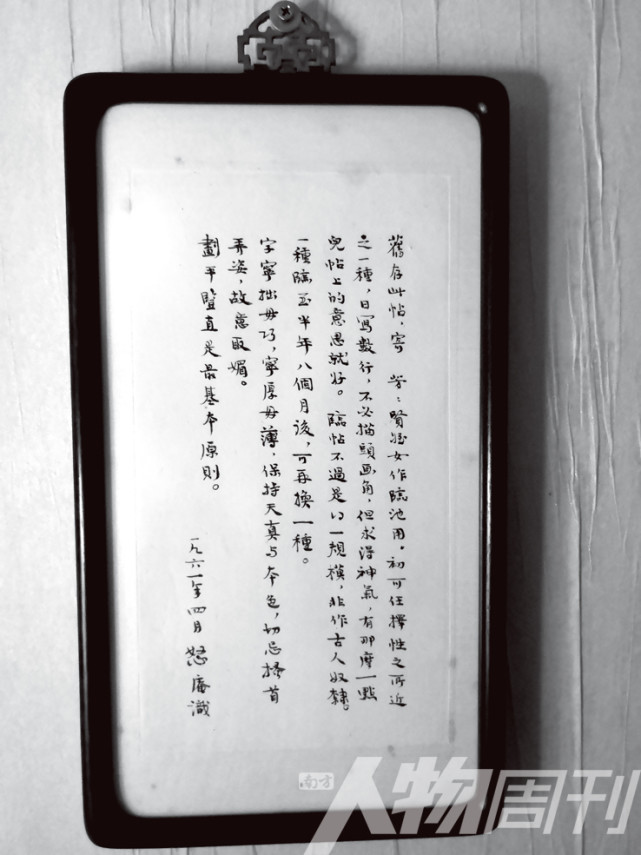 舊存此帖,寄 芳:賢姪女作臨池用。初可任擇性之所近
之一種,日寫數行,不必描頭画角,但求得神氣,有那麼一點
兒帖上的意思就好。臨帖不過是以一規模,非作古人奴隸。
一種臨至半年八個月後,可再換一種。
字寧拙毋巧,寧厚毋薄,保持天真与本色,切忌搔首
弄姿,故意取媚。
劃平豎直是最基本原則。
一九六一年四月 怒庵識
南方
人物周刊